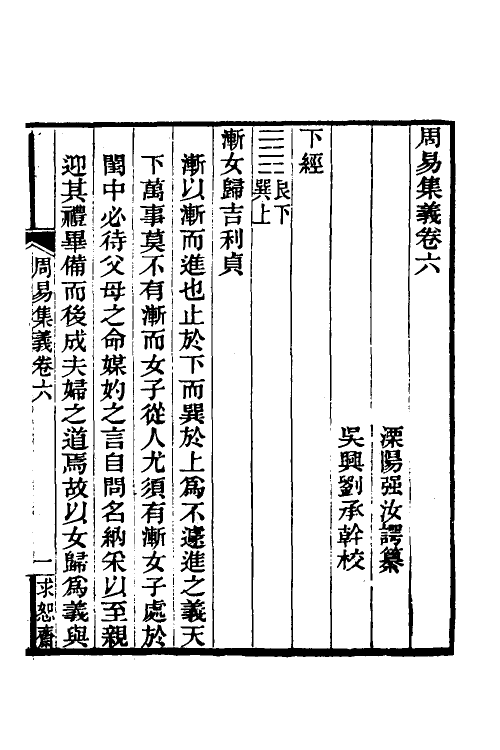 周易集義卷六
溧陽强汝諤纂
吳興劉承幹校
下經
艮下
巽上
漸女歸吉利貞
漸以漸而進也止於下而巽於上爲不遽進之義天
下萬事莫不有漸而女子從人尤須有漸女子處於
閨中必待父母之命媒妁之言自問名納采以至親
迎其禮畢備而後成夫婦之道焉故以女歸爲義與
周易集義卷六
一
求恕齋